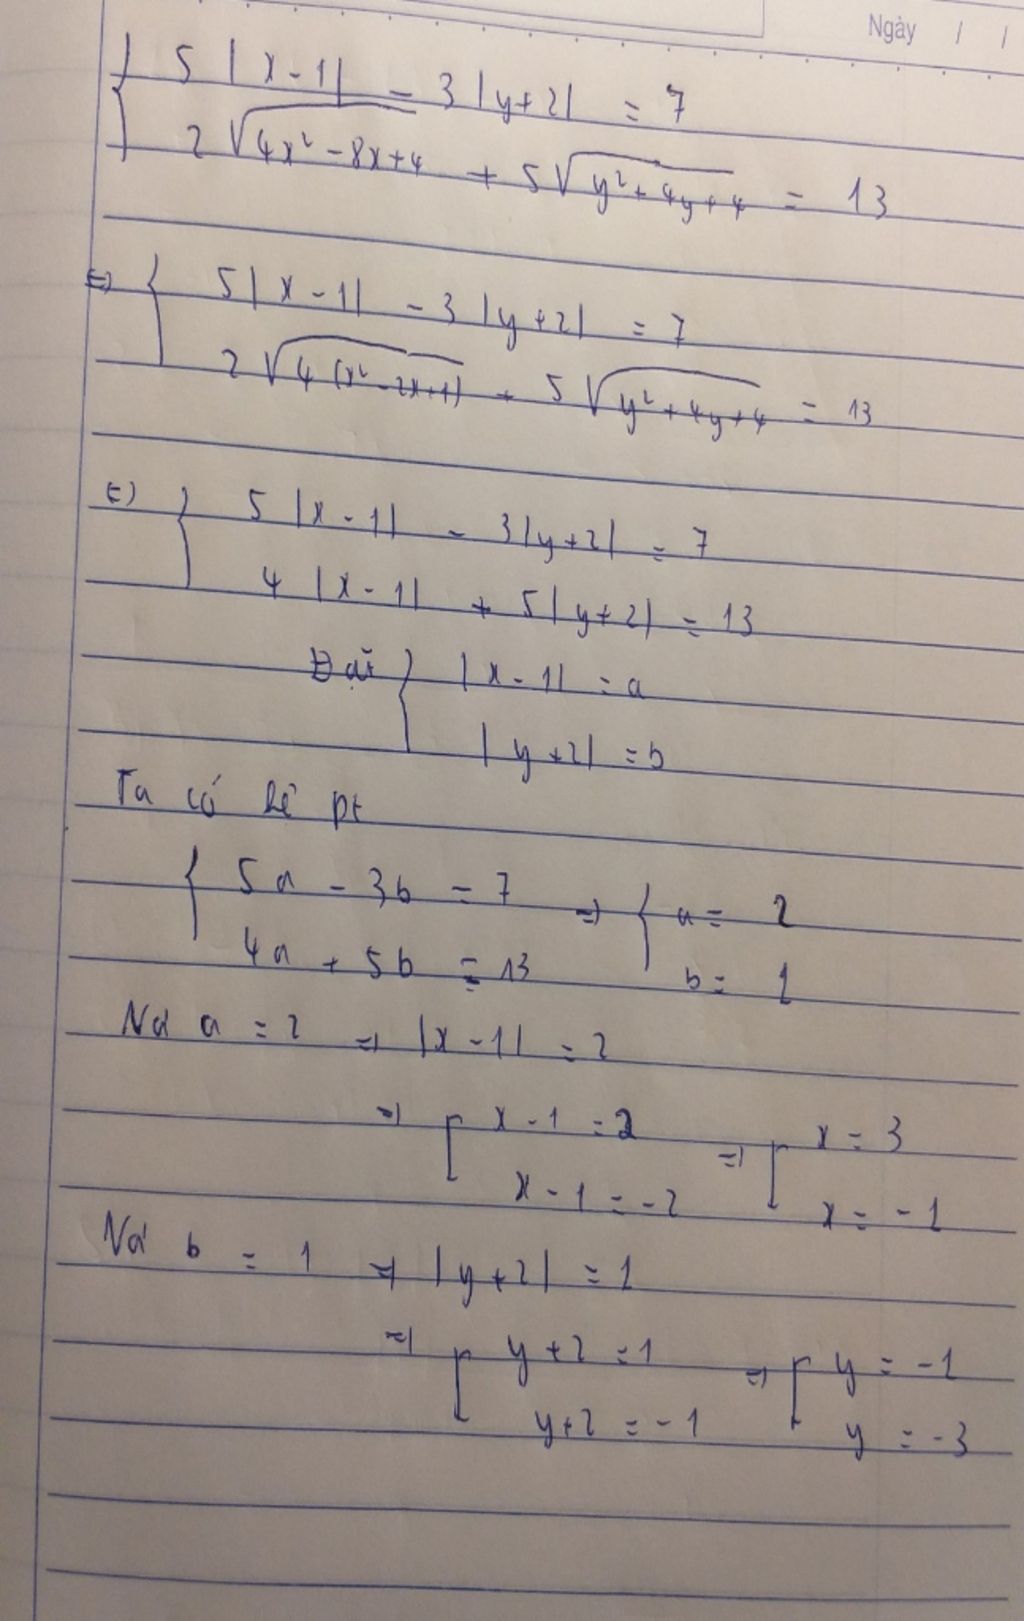 Ngày / /
{ 5 |x-1| - 3 |y+2| = 7
2 √(4x² - 8x+4) + 5√(y² + 4y + 4) = 13
<=> { 5|x-1| - 3 |y+2| = 7
2 √(4 (x² - 2x+1)) + 5 √(y² + 4y+4) = 13
<=> { 5 |x-1| - 3|y+2| = 7
4 |x-1| + 5|y+2| = 13
Đặt { |x-1| = a
|y+2| = b
Ta có hệ pt
{ 5a - 3b = 7 => { a = 2
4a + 5b = 13 b = 1
Với a = 2 => |x-1| = 2
=> [ x-1 = 2 => [ x = 3
x-1 = -2 x = -1
Với b = 1 => |y+2| = 1
=> [ y+2 = 1 => [ y = -1
y+2 = -1 y = -3